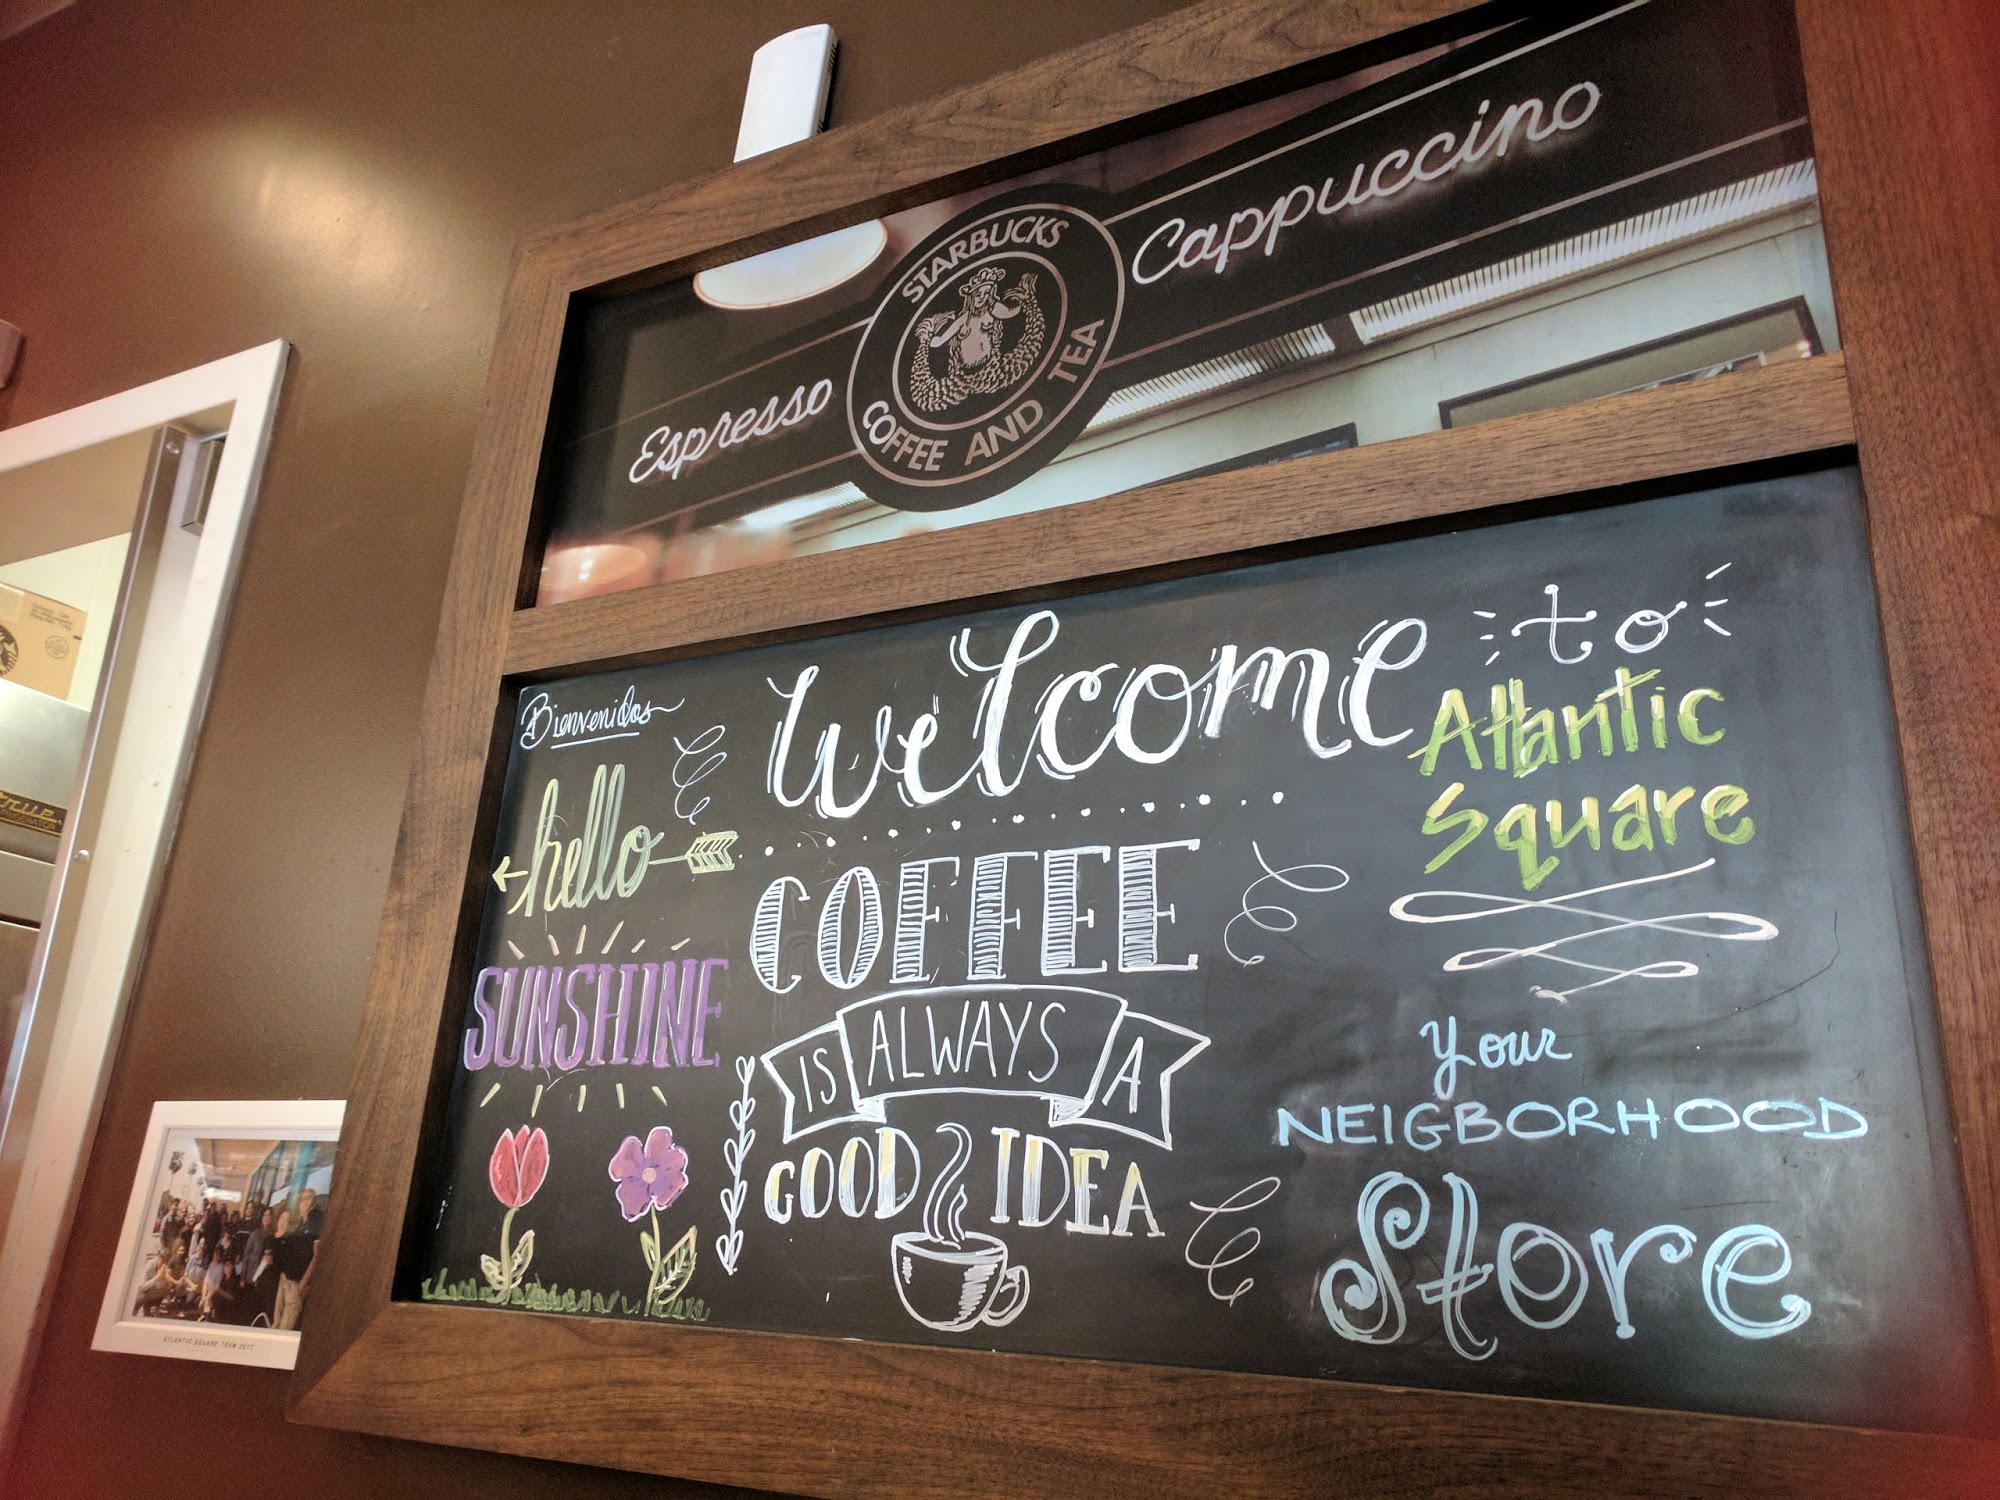 Espresso
STARBUCKS
COFFEE AND TEA
Cappuccino
Bienvenidos
Welcome to
Atlantic
Square
hello
SUNSHINE
COFFEE
IS ALWAYS A
GOOD IDEA
Your
NEIGBORHOOD
Store
ATLANTIC SQUARE TEAM 2017